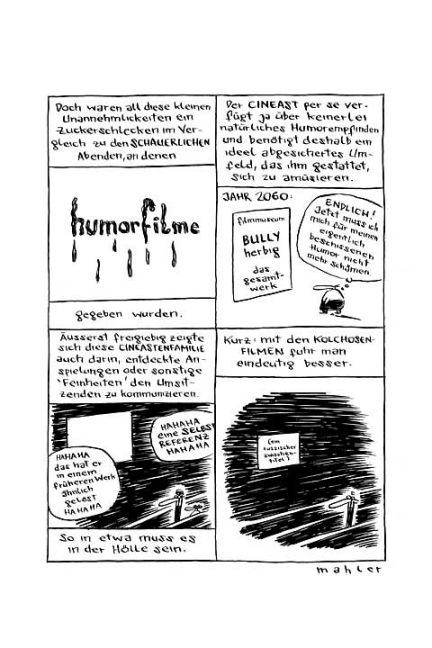 Doch waren all diese kleinen
Unannehmlichkeiten ein
Zuckerschlecken im Ver-
gleich zu den SCHAUERLICHEN
Abenden, an denen
humorfilme
gegeben wurden.
Der CINEAST per se ver-
fügt ja über keinerlei
natürliches Humorempfinden
und benötigt deshalb ein
ideel abgesichertes Um-
feld, das ihm gestattet,
sich zu amüsieren.
JAHR 2060:
filmmuseum
BULLY
herbig
das
gesamt-
werk
ENDLICH!
Jetzt muss ich
mich für meinen
eigentlich
beschissenen
Humor nicht
mehr schämen
Äusserst freigiebig zeigte
sich diese CINEASTENFAMILIE
auch darin, entdeckte An-
spielungen oder sonstige
'Feinheiten' den Umsit-
zenden zu kommunizieren.
HAHAHA
eine SELBST
REFERENZ
HAHAHA
HAHAHA
das hat er
in einem
früheren Werk
ähnlich
gelöst
HAHAHA
So in etwa muss es
in der Hölle sein.
Kurz: mit den KOLCHOSEN-
FILMEN fuhr man
eindeutig besser.
(ein
russischer
zwischen-
titel)
mahler